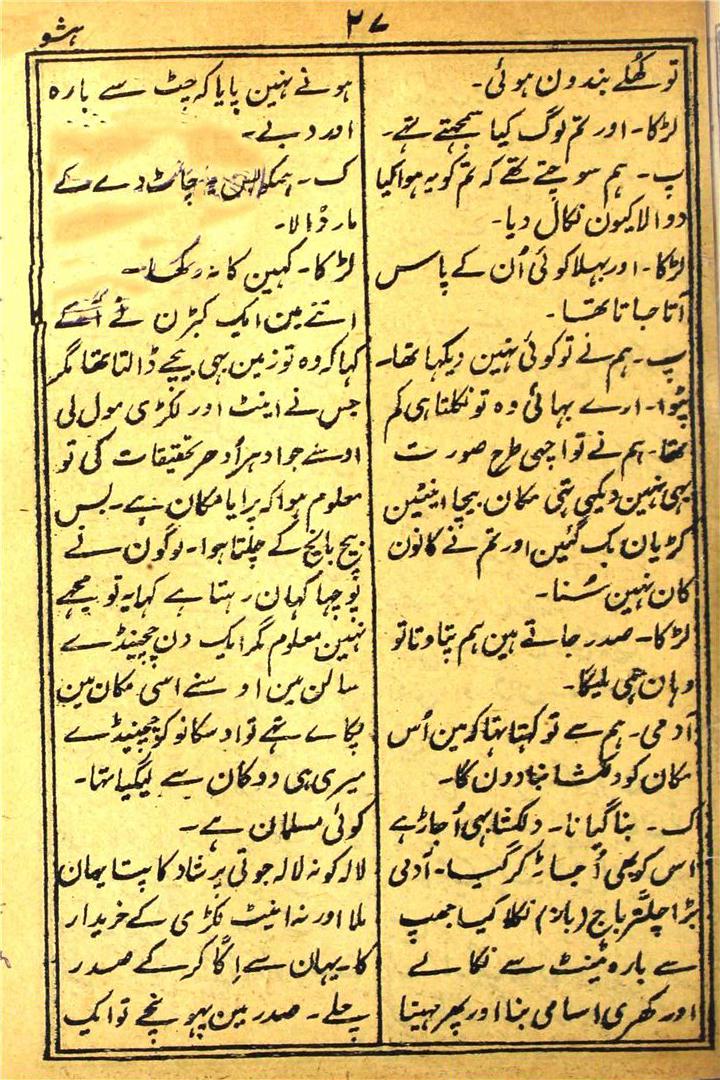 ۲۷
ہشو
تو کھُلے بندون ہوئی۔
لڑکا۔ اور تم لوگ کیا سمجھتے تہے۔
پ۔ ہم سوچتے تھے کہ تم کو یہ ہوا کیا
دوالا کیون نکال دیا۔
لڑکا۔ اور بہلا کوئی اُن کے پاس
آتا جاتا تھا۔
پ۔ ہم نے تو کوئی نہین دیکہا تھا۔
پٹوا۔ ارے بہائی وہ تو نکلتا ہی کم
تھا۔ ہم نے تو اچہی طرح صورت
بہی نہین دیکہی تہی مکان بیچا اینٹین
کڑیان بک گئین اور تم نے کانون
کان نہین سُنا۔
لڑکا۔ صدر جاتے ہین ہم پتا وتا تو
وہان ہی ملیگا۔
آدمی۔ ہم سے تو کہتا تہا کہ مین اُس
مکان کو دلکشا بنا دون گا۔
ک۔ بنا گیا نا۔ دلکشا بہی اُجاڑ ہے
اس کو بھی اُجاڑ کر گیا۔ آدمی
بڑا چلتّر باج (باز) نکلا گیا جھپ
سے بارہ مینٹ سے نکالے
اور کھری اسامی بنا اور پھر مہینا
ہونے نہین پایا کہ چٹ سے بارہ
اور دبے۔
ک۔ ہمکا چاٹ دے کے
مار ڈالا۔
لڑکا۔ کہین کا نہ رکھا۔
اتنے مین ایک کبڑن نے آکے
کہا کہ وہ تو زمین بہی بیچے ڈالتا تھا مگر
جس نے اینٹ اور لکڑی مول لی
اوسنے جو ادہر اُدھر تحقیقات کی تو
معلوم ہوا کہ پرایا مکان ہے۔ بس
بیچ بانچ کے چلتا ہوا۔ لوگون نے
پوچہا کہان رہتا ہے کہا یہ تو مجھے
نہین معلوم مگر ایک دن چچینڈے
سالن مین اوسنے اسی مکان مین
پکاے تہے تو اوسکا نوکر چچینڈے
میری ہی دوکان سے لیگیا تہا۔
کوئی مسلمان ہے۔
لالہ کو نہ لالہ جوتی پرشاد کا پتا یہان
ملا اور نہ اینٹ لکڑی کے خریدار
کا۔ یہان سے اِکّا کر کے صدر
چلے۔ صدر مین پہونچے تو ایک